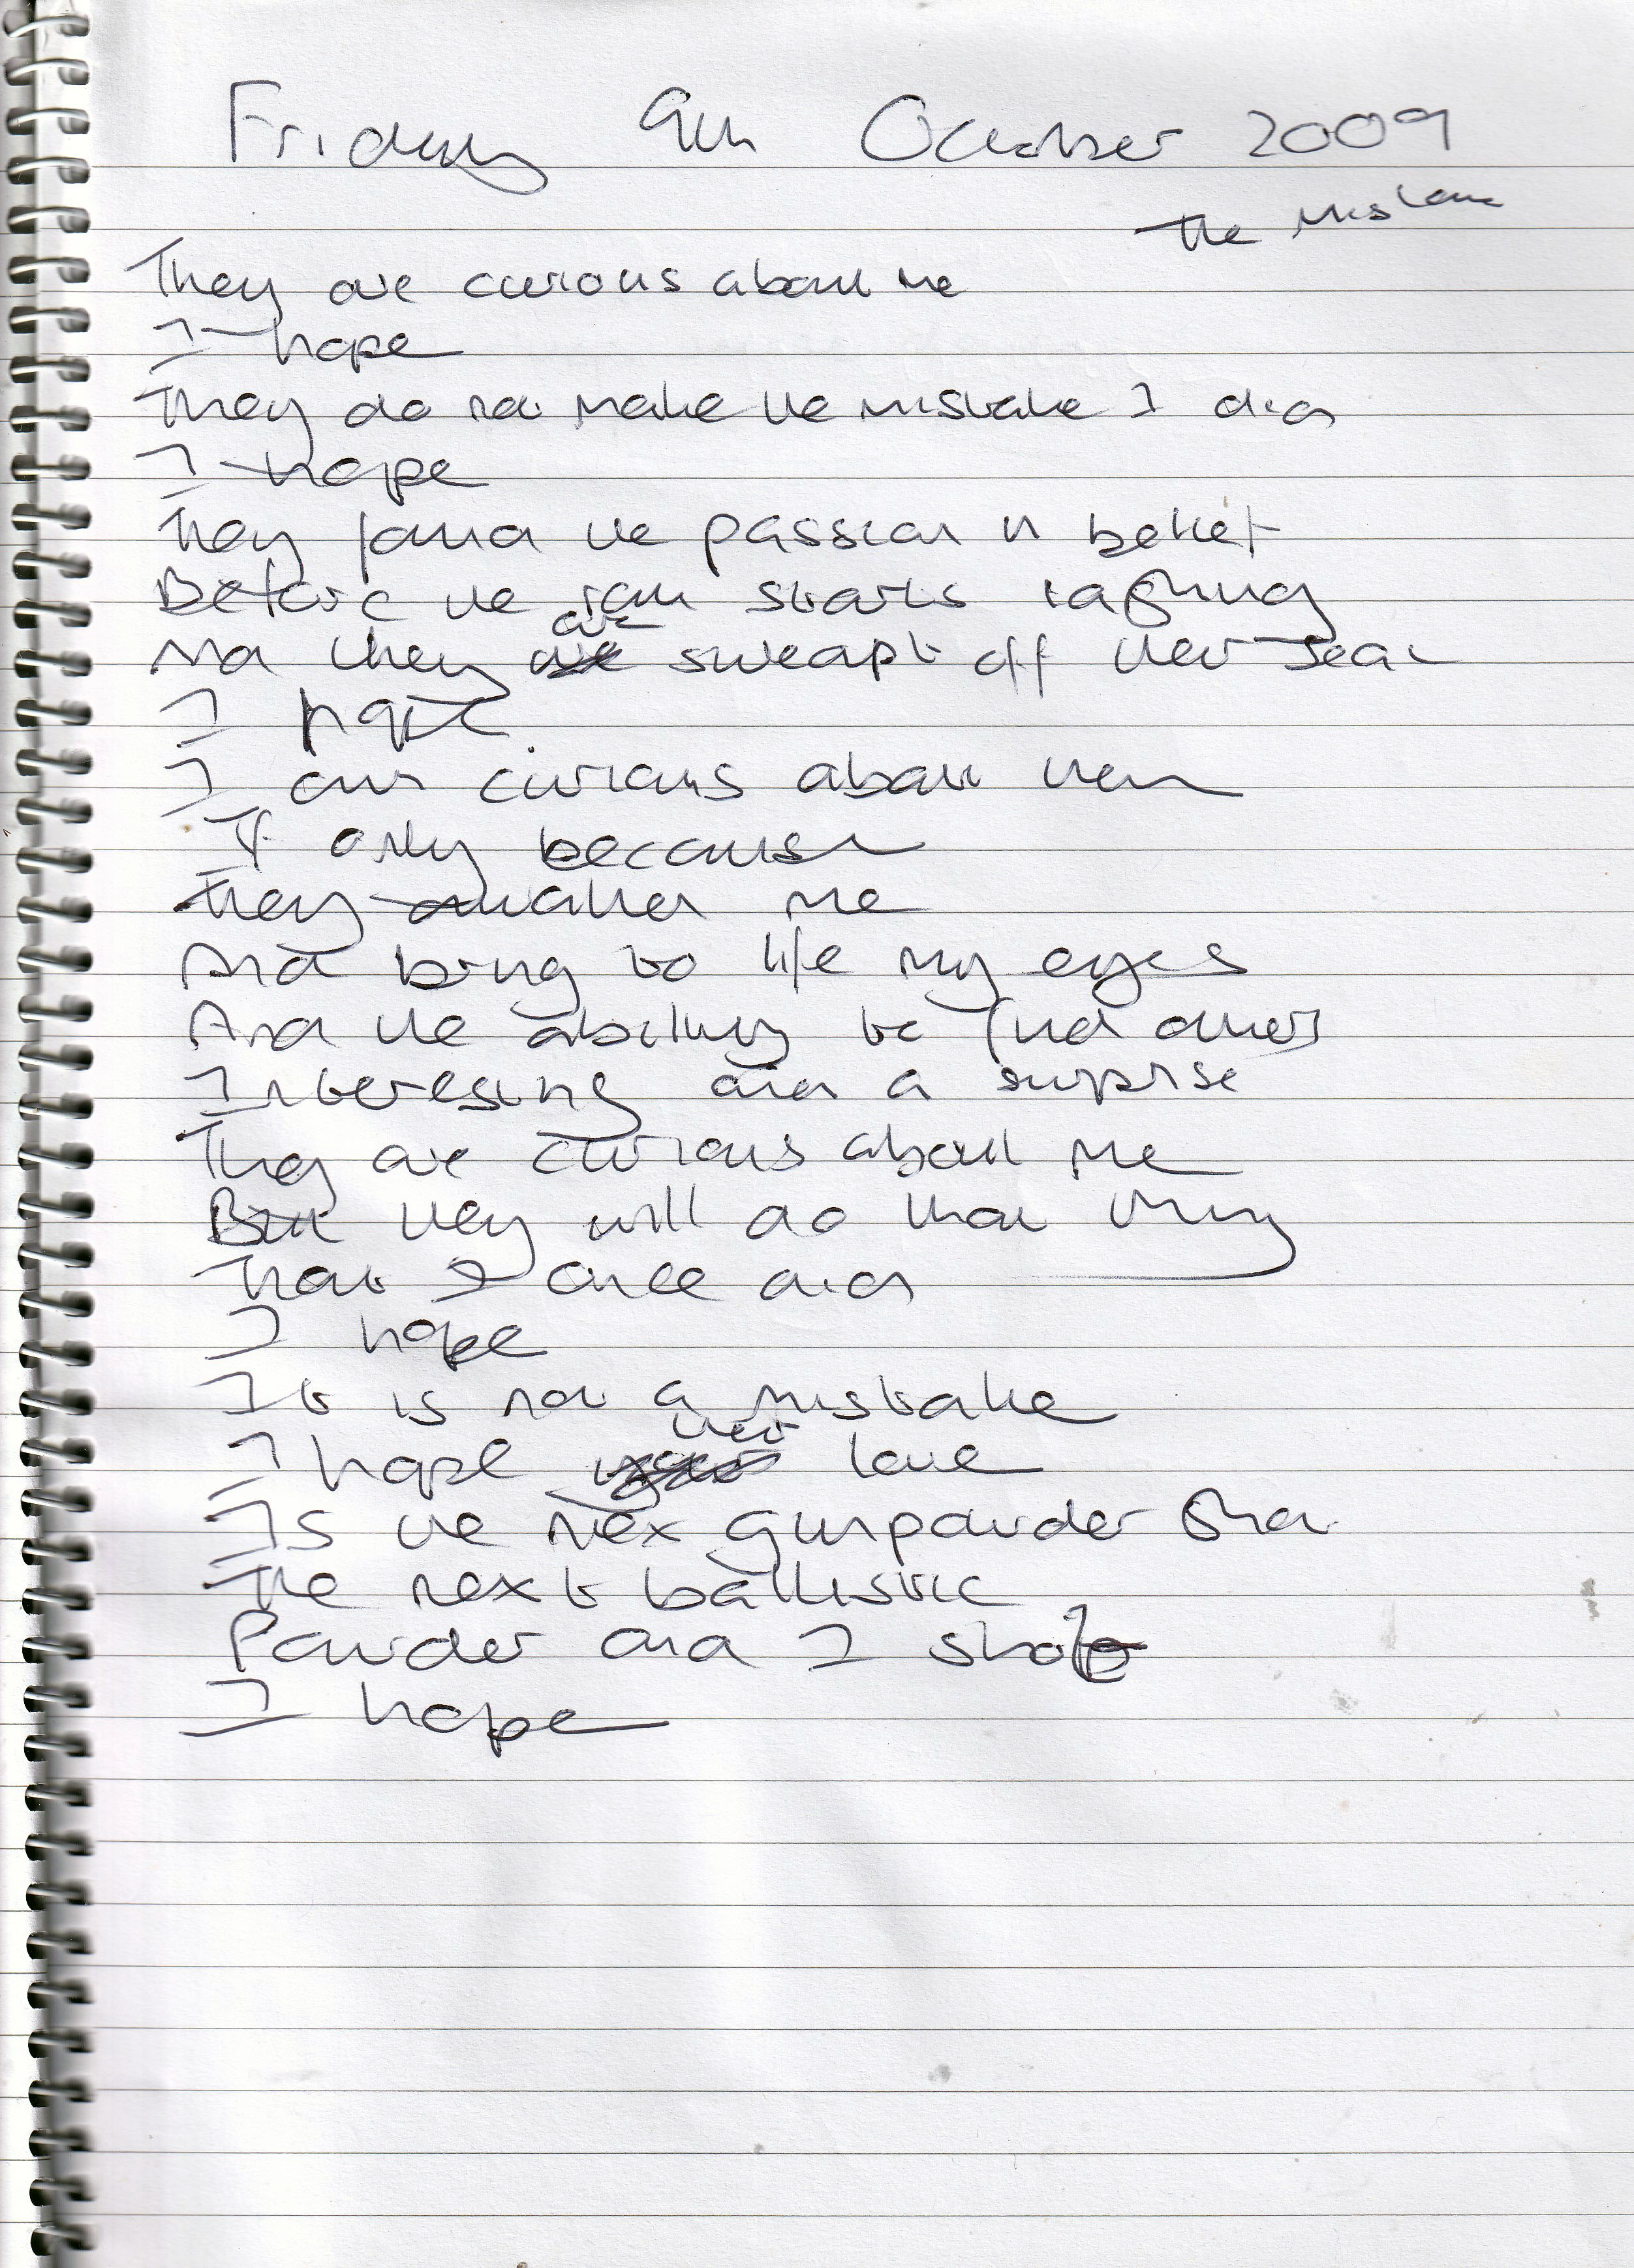 Friday 9th October 2009
The Mistake
They are curious about me
I hope
They do not make the mistake I did
I hope
They found the passion in belief
Before the rain starts
And they are sweapt off their seat
I hope
I am curious about them
If only because
They awaken me
And bring to life my eyes
And the ability to find others
Interesting and a surprise
They are curious about me
But they will do that thing
That I once did
I hope
It is not a mistake
I hope their love
Is the nex gunpowder shot
The next ballistic
Powder and I shot
I hope